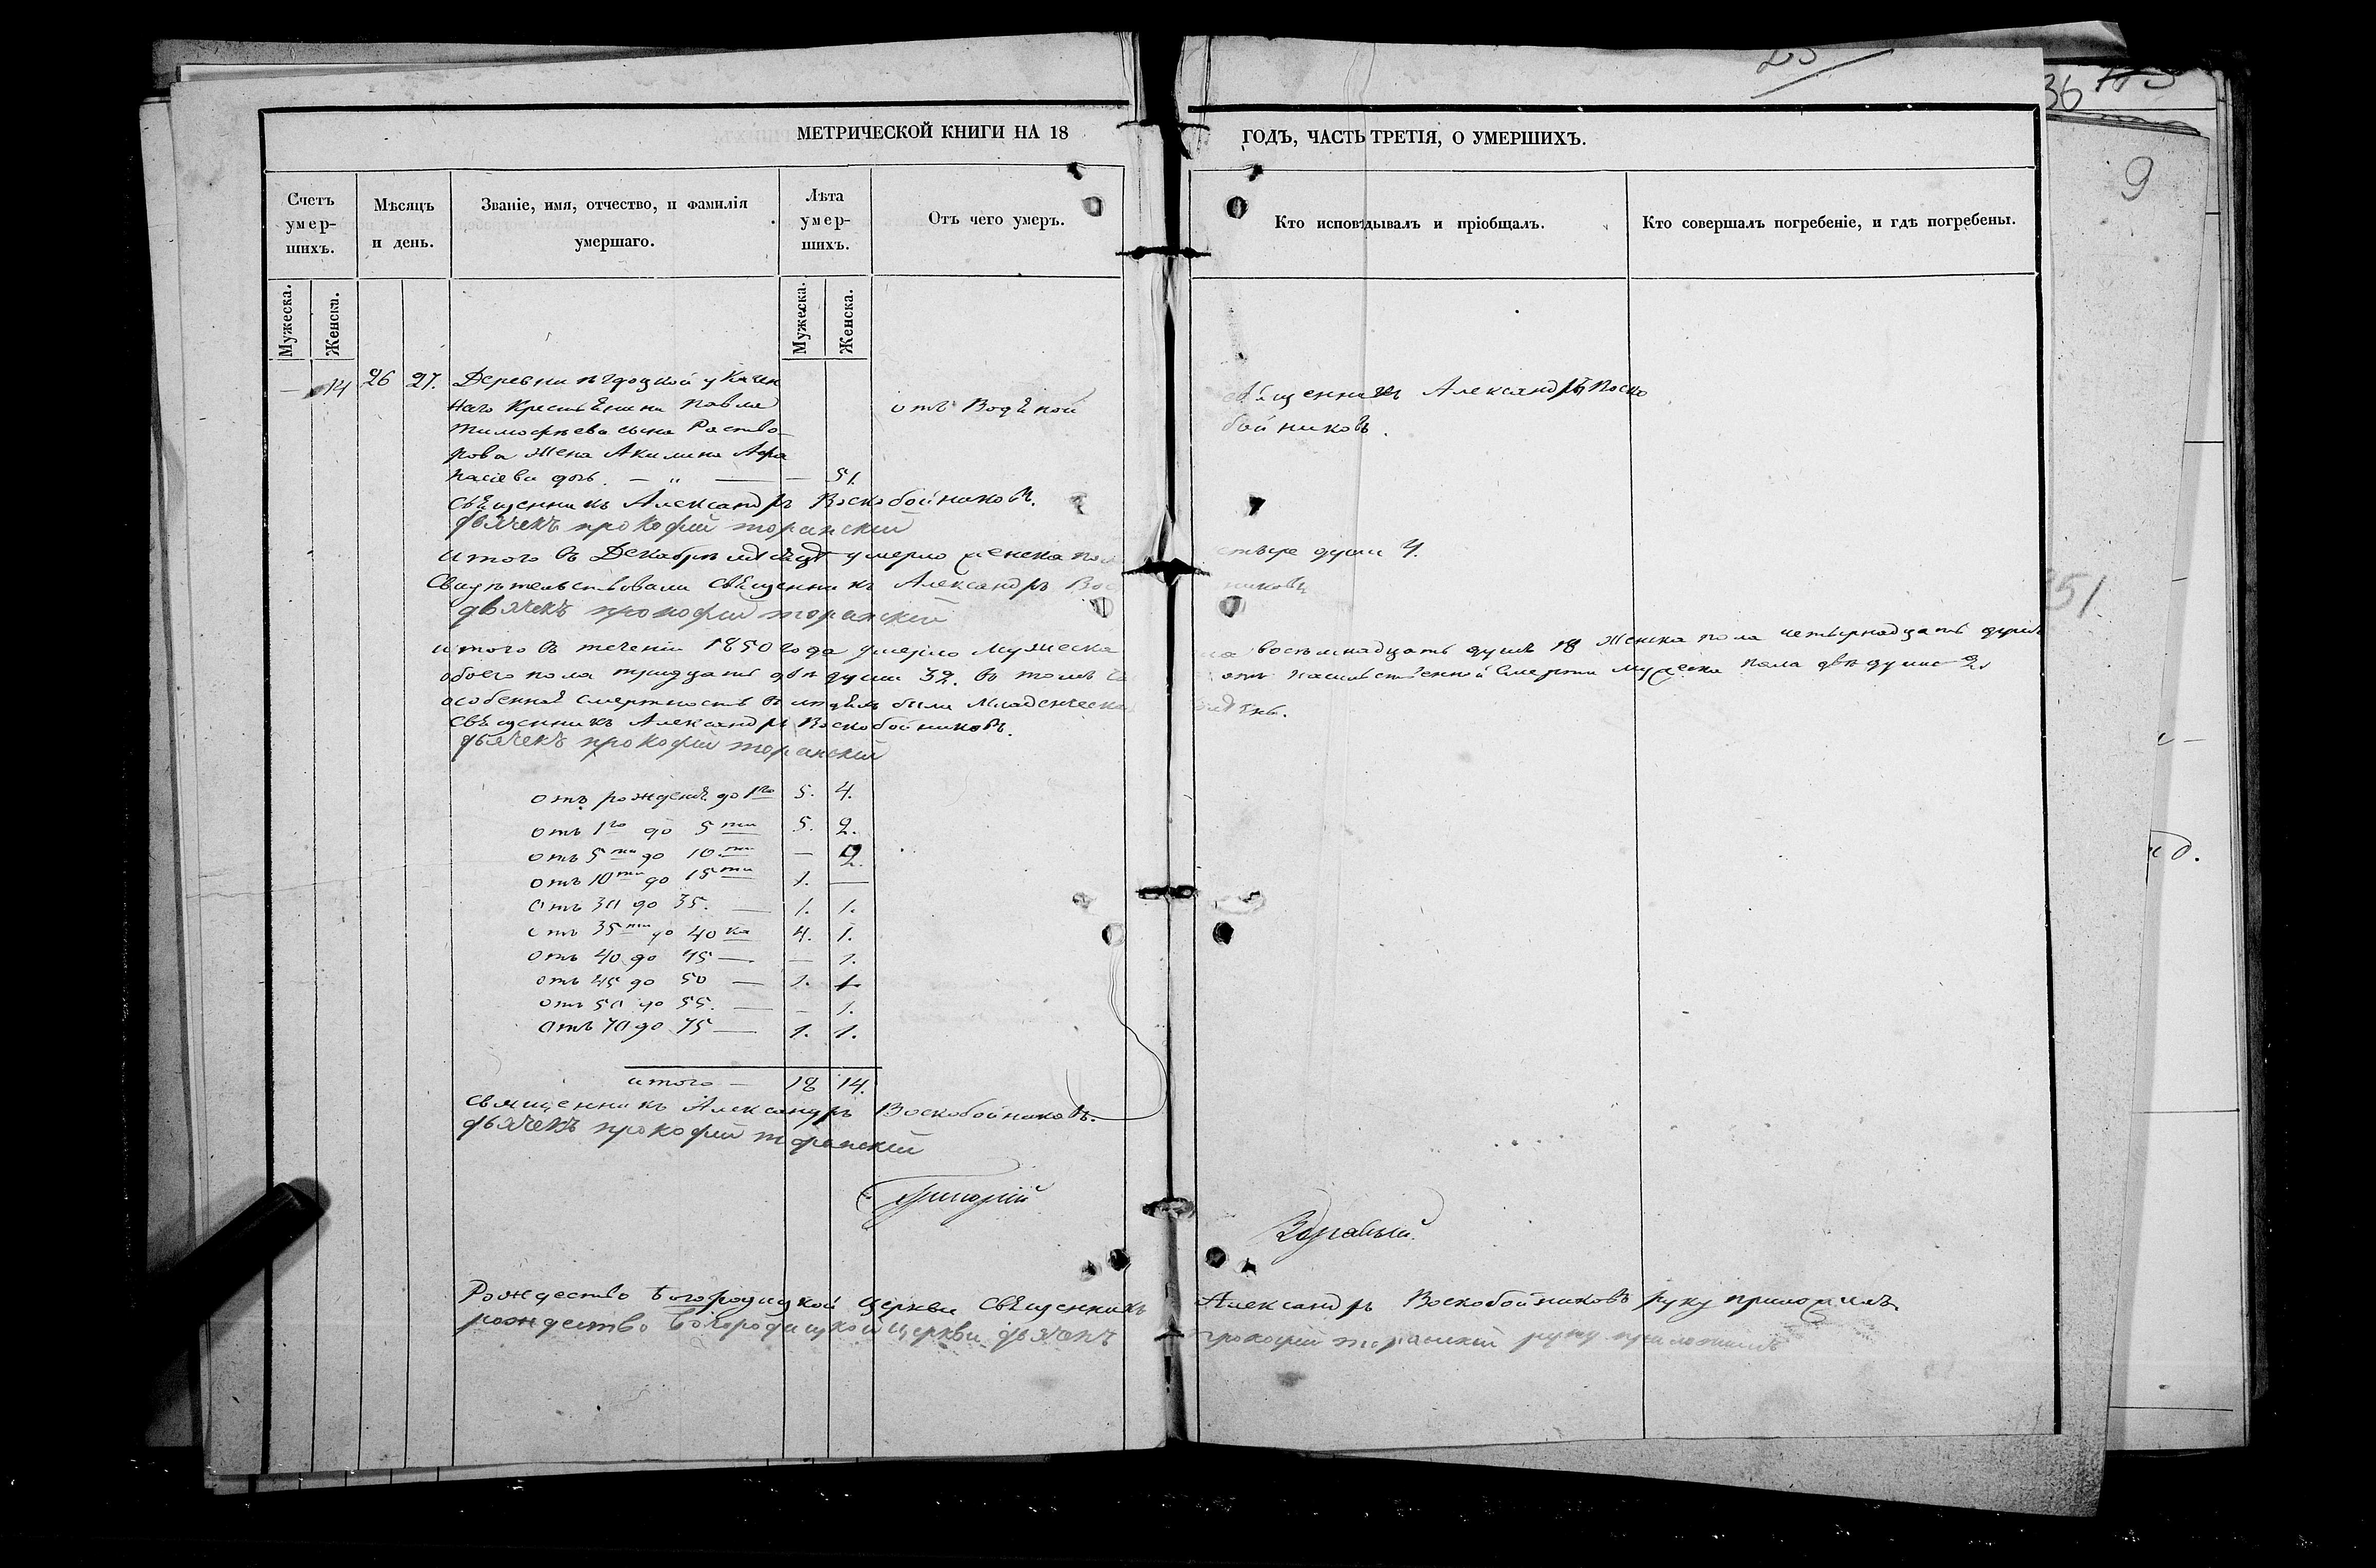 МЕТРИЧЕСКОЙ КНИГИ НА 18
ГОДЪ, ЧАСТЬ ТРЕТІЯ, О УМЕРШИХЪ.
Счетъ умер-шихъ.
Мѣсяцъ и день.
Званіе, имя, отчество, и фамилія умершаго.
Лѣта умер-шихъ.
Отъ чего умеръ.
Кто исповѣдывалъ и пріобщалъ.
Кто совершалъ погребеніе, и гдѣ погребены.
Мужеска.
Женска.
Мужеска.
Женска.
— 14 26 27. Деревни
наго Крестьянина Павла
отъ Водяной
Священникъ Александръ Воско
Тимофѣева сына Раство
бойниковъ.
рова жена Акилина Афа
насіева дочь. — „ — — 51.
Священникъ Александръ Воскобойниковъ.
дьячекъ прокофий торанский
итого въ Декабрѣ мѣсяцѣ умерло женска пол
стыре души 4.
Свидѣтельствовали Священникъ Александръ Вос
никовъ
дьячекъ прокофий торанский
итого въ теченіи 1850 года умерло Мужеска
ла восемнадцать душъ 18 Женска пола четырнадцать душъ
обоего пола тридцать двѣ души 32. въ томъ
отъ насильственной Смерти Мужеска пола двѣ души 2.
особенная смертность въ были Младенческа
Священникъ Александръ Воскобойниковъ.
дьячекъ прокофий торанский
отъ рожденія до 1го 5. 4.
отъ 1го до 5ти 5. 2.
отъ 5ти до 10ти — 2.
отъ 10ти до 15ти 1. —
отъ 30 до 35. — 1. 1.
отъ 35ти до 40ка 4. 1.
отъ 40 до 45 — — 1.
отъ 45 до 50 — 1. 1.
отъ 50 до 55. — - 1.
отъ 70 до 75 — 1. 1.
итого — 18 14.
Священникъ Александръ Воскобойниковъ.
дьячекъ прокофий торанский
Григорій
Рождество Богородицкой Церкви Священникъ
Александръ Воскобойниковъ руку приложилъ
рождество Богородицкой церкви дьячекъ
прокофий торанский руку приложилъ
36
9
51